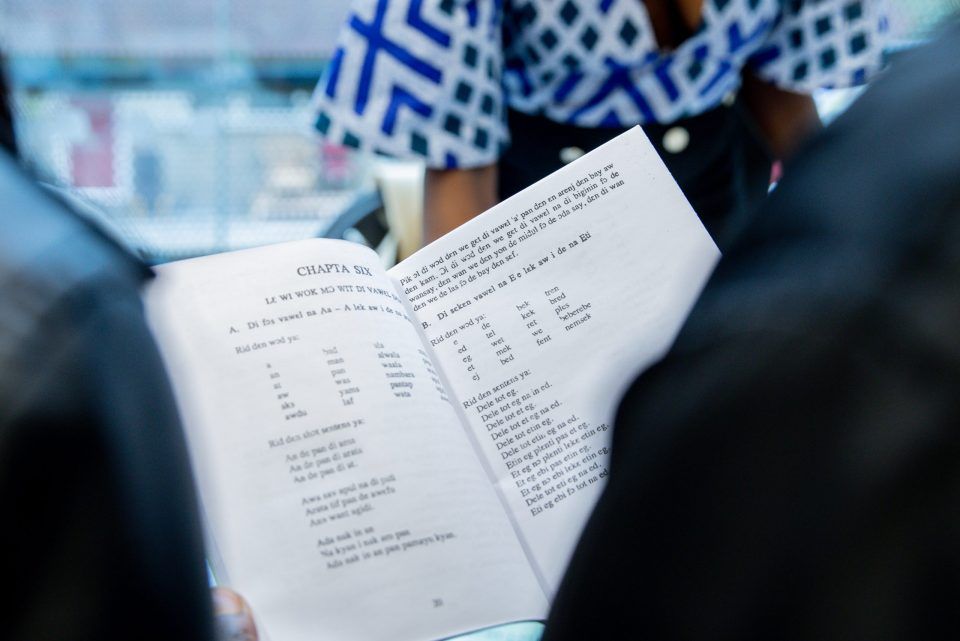 CHAPTA SIX
LƐ WI WOK MƆ WIT DI VAWEL
A. Di fɔs vawel na Aa – A lek aw i de na
Rid dɛn wɔd ya:
a had ala
an man alwala
at pan waala
aw was nambara
aks yams pantap
awdu laf wata
Rid dɛn shɔt sɛntɛns ya:
An de pan di ama
An de pan di arata
An de pan di at.
Awa sav spul na di pati
Arata tif pan de awefu
Ans want agidi.
Ada nak in an
Na kyan i nak am pan
Ada nak in an pan pamayn kyan.
20
Pik ɔl di wɔd dɛn we get di vawel 'a' pan dɛn ɛn arenj dɛn bay aw
dɛn kam. Ɔl di wɔd dɛn we get di vawel na di biginin fɔ de
wansay, dɛn wan we dɛn yon de midul fɔ de ɔda say, dɛn di wan
dɛn we de las fɔ de bay dɛn sef.
B. Di sɛkɛn vawel na E e lek aw i de na Eti
Rid dɛn wɔd ya:
e de bek tren
ed tel kek bred
eg wet ret ples
et mek we beberebe
ej bed fent nemsek
Rid dɛn sɛntɛns ya:
Dele tot eg.
Dele tot eg na in ed.
Dele tot et eg.
Dele tot eg na ed.
Dele tot etin eg.
Dele tot etin eg na ed.
Etin eg plenti pas et eg.
Et eg nɔ plenti leke etin eg.
Et eg ebi pas etin eg.
Et eg nɔ ebi leke etin eg.
Dele tot eti eg na ed.
Eti eg ebi fɔ tot na ed